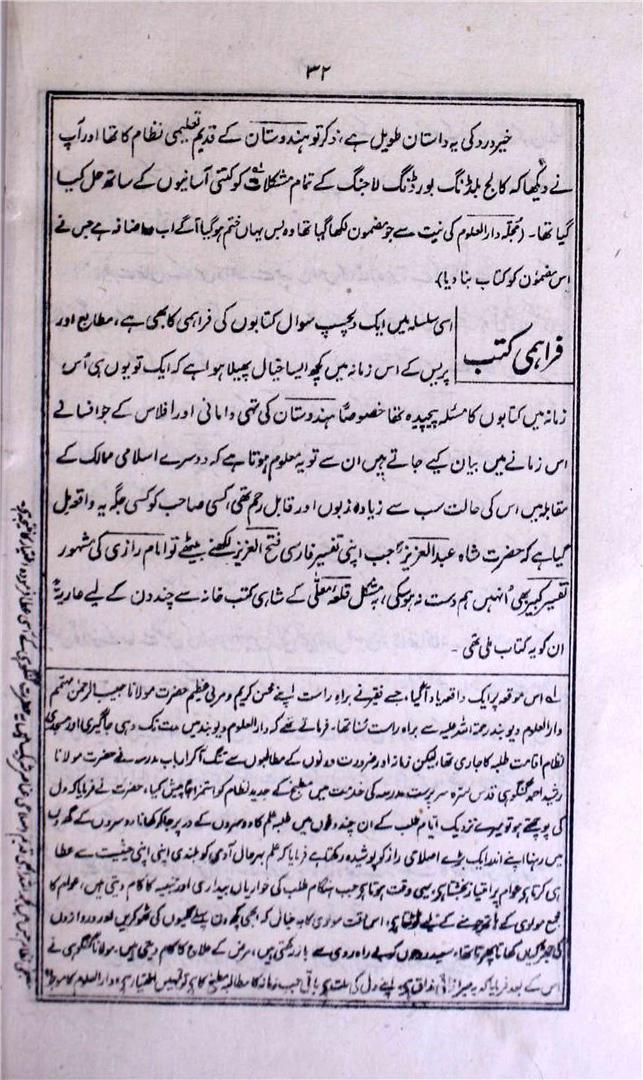 ۳۲
خیر درد کی یہ داستان طویل ہے، ذکر تو ہندوستان کے قدیم تعلیمی نظام کا تھا اور آپ
نے دیکھا کہ کالج بلڈنگ بورڈنگ لاجنگ کے تمام مشکلات کو کتنی آسانیوں کے ساتھ حل کیا
گیا تھا۔ (مجلہ دارالعلوم کی نیت سے جو مضمون لکھا گیا تھا وہ بس یہاں ختم ہو گیا آگے اب اضافہ ہے جس نے
اس مضمون کو کتاب بنا دیا)۔
فراہمی کتب
اسی سلسلہ میں ایک دلچسپ سوال کتابوں کی فراہمی کا بھی ہے، مطابع اور
پریس کے اس زمانہ میں کچھ ایسا خیال پھیلا ہوا ہے کہ ایک تو یوں ہی اُس
زمانہ میں کتابوں کا مسئلہ پیچیدہ تھا خصوصاً ہندوستان کی تہی دامانی اور افلاس کے جو افسانے
اس زمانے میں بیان کیے جاتے ہیں ان سے تو یہ معلوم ہوتا ہے کہ دوسرے اسلامی ممالک کے
مقابلہ میں اس کی حالت سب سے زیادہ زبوں اور قابل رحم تھی، کسی صاحب کو کسی جگہ یہ واقعہ مل
گیا ہے کہ حضرت شاہ عبدالعزیزؒ جب اپنی تفسیر فارسی فتح العزیز لکھنے بیٹھے تو امام رازی کی مشہور
تفسیر کبیر بھی اُنہیں ہم دست نہ ہو سکی، بہ مشکل قلعہ معلّٰی کے شاہی کتب خانہ سے چند دن کے لیے عاریۃً
ان کو یہ کتاب ملی تھی۔
لے اس موقعہ پر ایک واقعہ یاد آ گیا، جسے فقیر نے براہ راست اپنے محسن کریم و مربی عظیم حضرت مولانا حبیب الرحمٰن مہتمم
دارالعلوم دیوبند رحمۃ اللہ علیہ سے براہ راست سُنا تھا۔ فرماتے تھے کہ دارالعلوم دیوبند میں مدت تک وہی جاگیری اور مسجدی
نظام اقامت طلبہ کا جاری تھا، لیکن زمانہ اور ضرورت دونوں کے مطالبوں سے تنگ آ کر ارباب مدرسہ نے حضرت مولانا
رشید احمد گنگوہی قدس سرہ سرپرست مدرسہ کی خدمت میں مطبخ کے جدید نظام کو استمزاجاً پیش کیا، حضرت نے فرمایا کہ دل
کی پوچھتے ہو تو میرے نزدیک ایام طلب کے ان چند دنوں میں طلبہ علم کا دوسروں کے در پر جا کر کھانا دوسروں کے گھروں
میں رہنا اپنے اندر ایک بڑے اصلاحی راز کو پوشیدہ رکھتا ہے فرمایا کہ علم بہرحال آدمی کو بلندی اپنی اپنی حیثیت سے عطا
ہی کرتا ہے عوام پر امتیاز بخشتا ہے، یہی وقت ہوتا ہے جب ہنگام طلب کی خواریاں بیداری اور تنبیہ کا کام دیتی ہیں، عوام کا
مجمع مولوی کے ہاتھ چومنے کے لیے ٹوٹتا ہے، اس وقت مولوی کا یہ خیال کہ ابھی کچھ دن پہلے گلیوں کی ٹھوکریں اور دروازوں
کی جھڑکیاں کھاتا پھرتا تھا، سیدھروں کو بے راہ روی سے باز رکھتی ہیں، مرض کے علاج کا کام دیتی ہیں۔ مولانا گنگوہی نے
اس کے بعد فرمایا کہ یہ میرا ذاتی مذاق ہے، اپنے دل کی بات ہے باقی جب زمانہ کا مطالبہ مطبخ کا ہے تو تمہیں اختیار ہے، دارالعلوم کا موجودہ